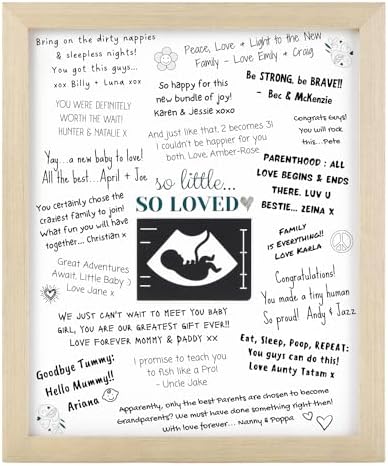 Bring on the dirty nappies
& sleepless nights!
You got this guys...
xox Billy + Luna xox
Peace, Love + Light to the New
Family - Love Emily & Craig
So happy for this
new bundle of joy!
Karen & Jessie xoxo
Be STRONG, be BRAVE!!
- Bec & McKenzie
YOU WERE DEFINITELY
WORTH THE WAIT!
HUNTER & NATALIE X
And just like that, 2 becomes 3!
I couldn't be happier for you
both. Love Amber-Rose
Congrats Guys!
You will rock
this...Pete
Yay...a new baby to love!
All the best...April + Joe
PARENTHOOD : ALL
LOVE BEGINS & ENDS
THERE. LUV U
BESTIE... ZEINA X
so little...
SO LOVED
You certainly chose the
craziest family to join!
What fun you will have
together... Christian x
FAMILY
is EVERYTHING!!
LOVE KARLA
Great Adventures
Await, Little Baby :)
Love Jane x
Congratulations!
You made a tiny human
So proud! Andy & Jazz
WE JUST CAN'T WAIT TO MEET YOU BABY
GIRL, YOU ARE OUR GREATEST GIFT EVER!!
LOVE FOREVER MOMMY & DADDY XX
Eat, Sleep, Poop, REPEAT:
You guys can do this!
Love Aunty Tatam x
Goodbye Tummy:
Hello Mummy!!
Ariana
I promise to teach you
to fish like a Pro!
- Uncle Jake
Apparently, only the best Parents are chosen to become
Grandparents? We must have done something right then!
With love forever... Nanny & Poppa